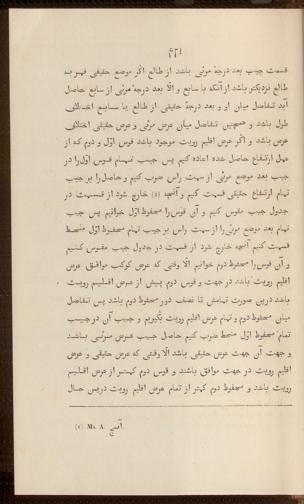 قسمت جیب بعد درجهٔ مرئی باشد از طالع اگر موضع حقیقی قمر به
طالع نزدیکتر باشد از آنکه با سابع و الّا بعد درجهٔ مرئی از سابع حاصل
آید تفاضل میان او و بعد درجهٔ حقیقی از طالع یا سابع اختلاف
طول باشد و همچنین تفاضل میان عرض مرئی و عرض حقیقی اختلاف
عرض باشد و اگر عرض اقلیم رویت موجود باشد قوس اوّل و دوم که از
عمل ارتفاع حاصل شده اعاده کنیم پس جیب تمام قوس اوّل را در
جیب بعد موضع مرئی از سمت راس ضرب کنیم و حاصل را بر جیب
تمام ارتفاع حقیقی قسمت کنیم و آنچه (١) خارج شود از قسمت در
جدول جیب مقوس کنیم و آن قوس را محفوظ اوّل خوانیم پس جیب
تمام بعد موضع مرئی را از سمت راس بر جیب تمام محفوظ اوّل منحط
قسمت کنیم آنچه خارج شود از قسمت در جدول جیب مقوس کنیم
و آن قوس را محفوظ دوم خوانیم الّا وقتی که عرض کوکب موافق عرض
اقلیم رویت باشد در جهت و قوس دوم بیش از عرض اقلیم رویت
باشد درین صورت تمامش تا نصف دور محفوظ دوم باشد پس تفاضل
میان محفوظ دوم و تمام عرض اقلیم رویت بگیریم و جیب آن در جیب
تمام محفوظ اوّل منحط ضرب کنیم حاصل جیب عرض مرئی باشد
و جهت آن جهت عرض حقیقی باشد الّا وقتی که عرض حقیقی و عرض
اقلیم رویت در جهت موافق باشند و قوس دوم کمتر از عرض اقلیم
رویت باشد و محفوظ دوم کمتر از تمام عرض اقلیم رویت درین حال
(١) Ms. A.